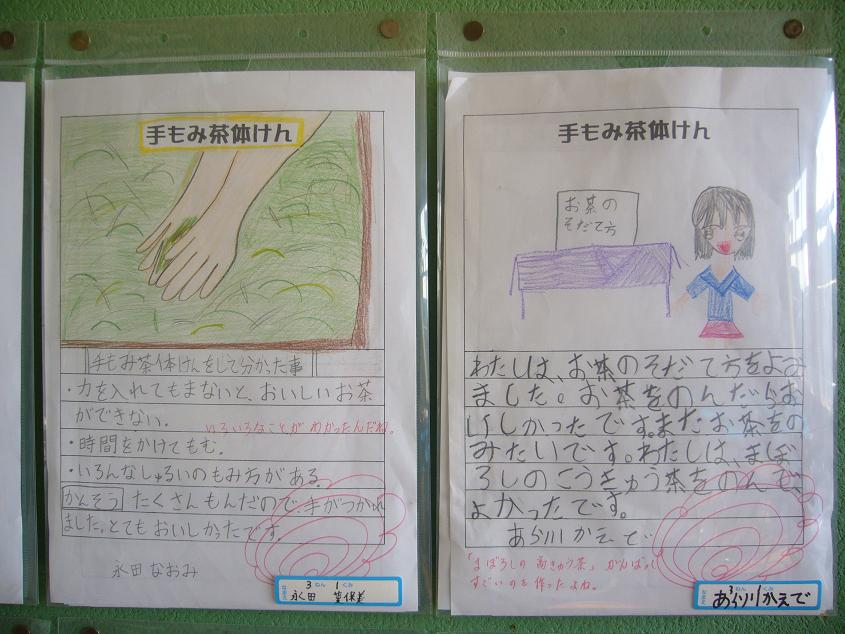 手もみ茶体けん
手もみ茶体けんをして分かった事
・力を入れてもまないと、おいしいお茶
ができない。
いろいろなことがわかったんだね。
・時間をかけてもむ。
・いろんなしゅるいのもみ方がある。
かんそう たくさんもんだので、手がつかれ
ました。とてもおいしかったです。
永田 なおみ
3ねん 1くみ
なまえ 永田
手もみ茶体けん
お茶の
そだて方
わたしは、お茶のそだて方をよみ
ました。お茶をのんだらお
いしかったです。またお茶をの
みたいです。わたしは、まぼ
ろしのこうきゅう茶をのんで
よかったです。
あら川 かえで
「まぼろしの高きゅう茶」がんばって
すごいのを作ったよね。
3ねん 1くみ
なまえ かえで